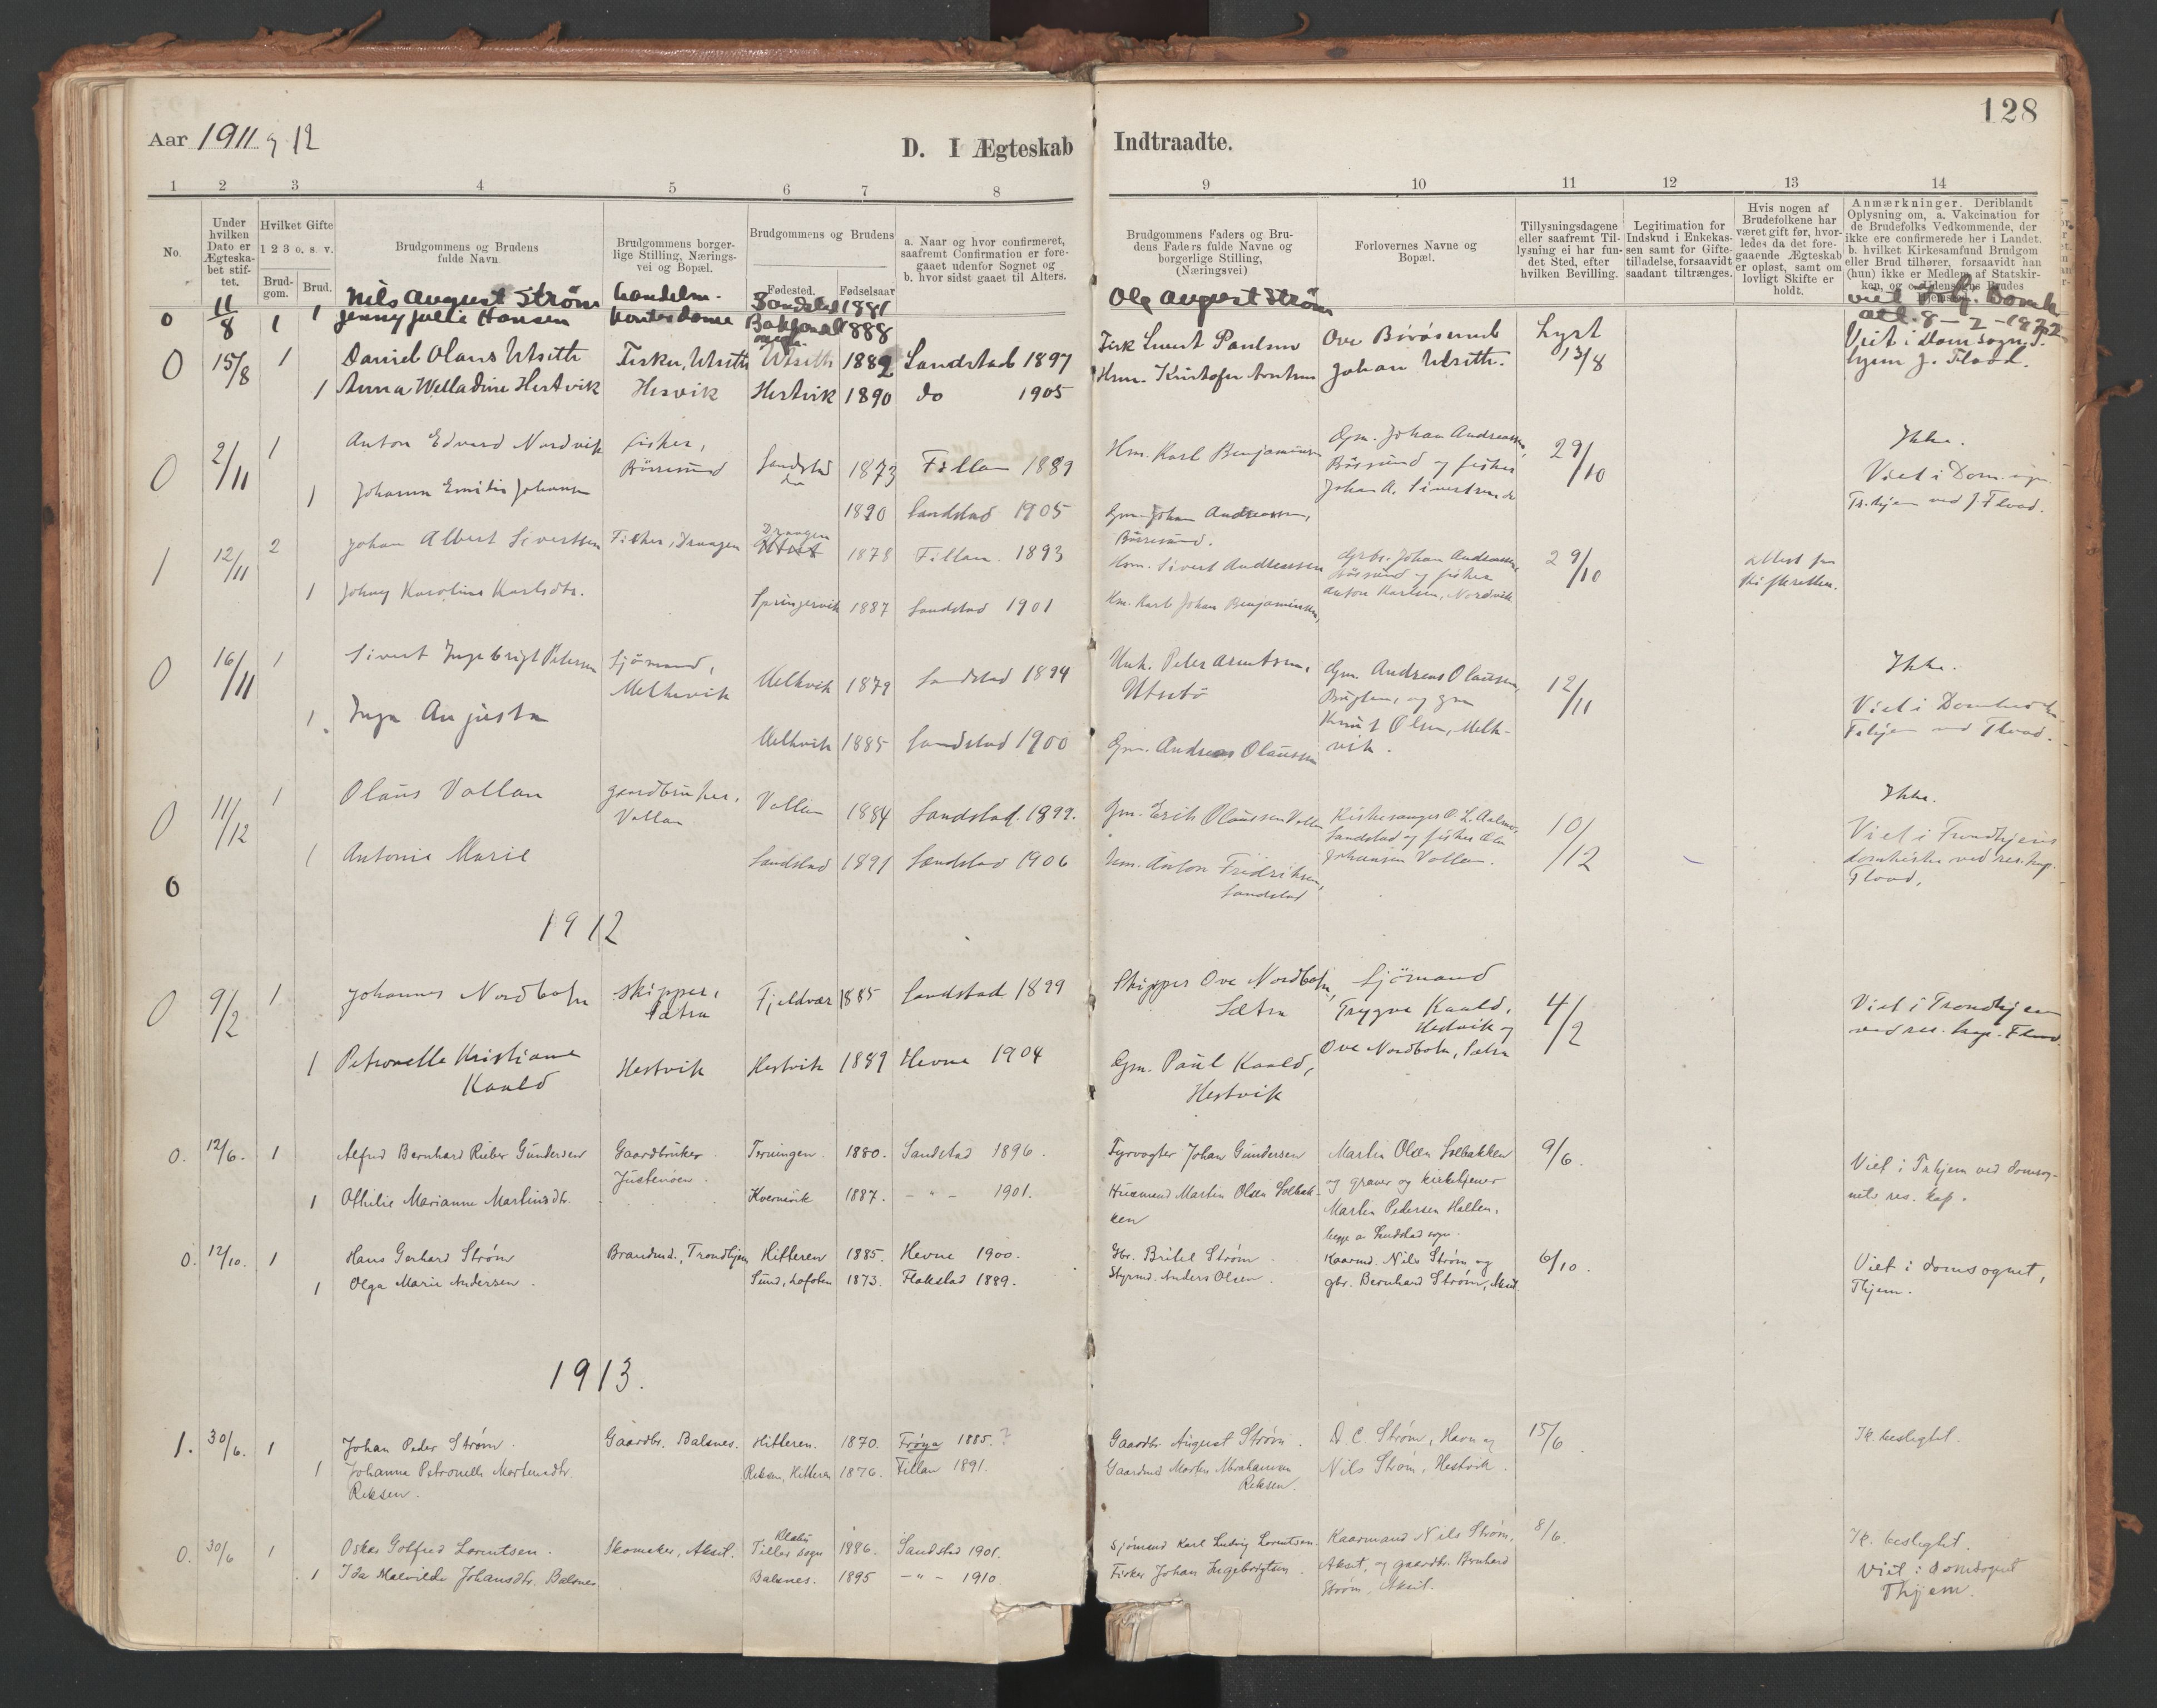 128
Aar 1911 og 12
D. I Ægteskab Indtraadte.
1 2 3 4 5 6 7 8 9 10 11 12 13 14
No.
Under hvilken Dato er Ægteskabet stiftet.
Hvilket Gifte 1 2 3 o. s. v.
Brudgom. Brud.
Brudgommens og Brudens fulde Navn.
Brudgommens borgerlige Stilling, Næringsvei og Bopæl.
Brudgommens og Brudens
Fødested. Fødselsaar
a. Naar og hvor confirmeret, saafremt Confirmation er foregaaet udenfor Sognet og
b. hvor sidst gaaet til Alters.
Brudgommens Faders og Brudens Faders fulde Navne og borgerlige Stilling, (Næringsvei)
Forlovernes Navne og Bopæl.
Tillysningsdagene eller saafremt Tillysning ei har fundet Sted, efter hvilken Bevilling.
Legitimation for Indskud i Enkekassen samt for Giftetilladelse, forsaavidt saadant tiltrænges.
Hvis nogen af Brudefolkene har været gift før, hvorledes da det foregaaende Ægteskab er opløst, samt om lovligt Skifte er holdt.
Anmærkninger. Deriblandt Oplysning om, a. Vakcination for de Brudefolks Vedkommende, der ikke ere confirmerede her i Landet. b. hvilket Kirkesamfund Brudgom eller Brud tilhører, forsaavidt han (hun) ikke er Medlem af Statskirken,
0 11/8 1 Nils August Strøm handelsm. Sandstad 1881 Ole August Strøm
1 Jenny Julie Hansen kontordame 1888
0 15/8 1 Daniel Olaus Utseth Fisker, Utseth Utseth 1882 Sandstad 1897 Fisk Sivert Paulsen Ove Börösund Lyst 13/8 Viet i Domsogn. T.hjem J. Flood.
1 Anna Welladine Hestvik Hesvik Hestvik 1890 do 1905 Hsm. Kristofer Arntsen Johan Utseth.
0 2/11 1 Anton Edvard Nordvik fisker, Börresund Sandstad 1873 Fillan 1889 Hm. Karl Benjaminsen Gm. Johan Andreassen, Börsund og fisker Johan A. Sivertsen do 29/10 Ikke.
Viet i Dom
Tr.hjem ved J. Flood.
1 Johanna Emilie Johansen do 1890 Sandstad 1905 Gm. Johan Andreassen, Börresund.
1 12/11 2 Johan Albert Sivertsen Fisker, Draagen Draagen 1878 Fillan. 1893 Hsm. Sivert Andreassen Grbr. Johan Andreassen, Börsund og fisker Anton Karlsen, Nordvik 29/10 attest fra skifteretten.
1 Johny Karoline Karlsdtr. Springervik 1887 Sandstad 1901 Hm. Karl Johan Benjaminsen,
0 16/11 1 Sivert Ingebrigt Petersen Sjömand, Melkevik Melkvik 1879 Sandstad 1894 Unk. Peter Arentsen, Utsetö Gm. Andreas Olaussen, og gm Knut Olsen, Melkvik. 12/11 Ikke.
Viet i Domkirken T.hjem ved Flood.
1 Inga Augusta Melkvik 1885 Sandstad 1900 Gm. Andreas Olaussen
0 11/12 1 Olaus Vollan gaardbruker, Vollan Vollan 1884 Sandstad. 1899. Gm. Erik Olaussen Vollan Kirkesanger O. L. Aalmo, Sandstad og fisker Ole Johansen Vollan. 10/12 Ikke.
Viet i Trondhjems domkirke ved res. kap. Flood.
1 Antonie Marie Sandstad 1891 Sandstad 1906 Hsm. Anton Fredriksen, Sandstad
6
1912
0 9/2 1 Johannes Nordbotn skipper, Sætra Fjeldvær 1885 Sandstad 1899 Skipper Ove Nordbotn, Sætra Sjömand Trygve Kaald, Hestvik og Ove Nordbotn, Sætra 4/2 Viet i Trondhjem ved res. kap. Flood.
1 Petronelle Kristiane Kaald Hestvik Hestvik 1889 Hevne 1904 Gm. Paul Kaald, Hestvik
0. 12/6. 1 Alfred Bernhard Rieber Gundersen Gaardbruker Justenöen. Terningen. 1880. Sandstad 1896. Fyrvogter Johan Gundersen Martin Olsen Solbakken og graver og kirketjener Martin Pedersen Halten, begge av Sandstad sogn. 9/6. Viet i Trhjem ved domsognets res. kap.
1 Othilie Marianne Martinsdtr. Kvernvik 1887. - " - 1901. Husmand Martin Olsen Solbakken
0. 12/10. 1 Hans Gerhard Strøm Brandmd., Trondhjem Hitteren 1885. Hevne 1900. Gbr. Britel Strøm Kaarmd. Nils Strøm og gbr. Bernhard Strøm, Akset. 6/10. Viet i domsognet, Thjem.
1 Olga Marie Andersen. Sund, Lofoten 1873. Flakstad 1889. Styrmd. Anders Olsen.
1913.
1. 30/6. 1 Johan Peder Strøm. Gaardbr. Balsnes. Hitteren. 1870. Frøya 1885. ? Gaardbr. August Strøm. D. C. Strøm, Havn og Nils Strøm, Hestvik. 15/6. Ik. beslegtet.
1 Johanna Petronelle Mortensdtr. Reksen. Reksen, Hitteren 1876. Fillan 1891. Gaardmd Morten Abrahamsen Reksen.
0. 30/6 1 Oskar Gotfred Lorentsen. Skomaker, Akset. Klæbu Tiller sogn 1886. Sandstad 1901. Sjömand Karl Ludvig Lorentsen. Kaarmand Nils Strøm, Akset, og gaardbr. Bernhard Strøm, Akset. 8/6. Ik. beslegtet.
Viet i domsognet Thjem.
1 Ida Malvilde Johansdtr. Balsnes Balsnes. 1895 - " - 1910 Fisker Johan Ingebrigtsen.